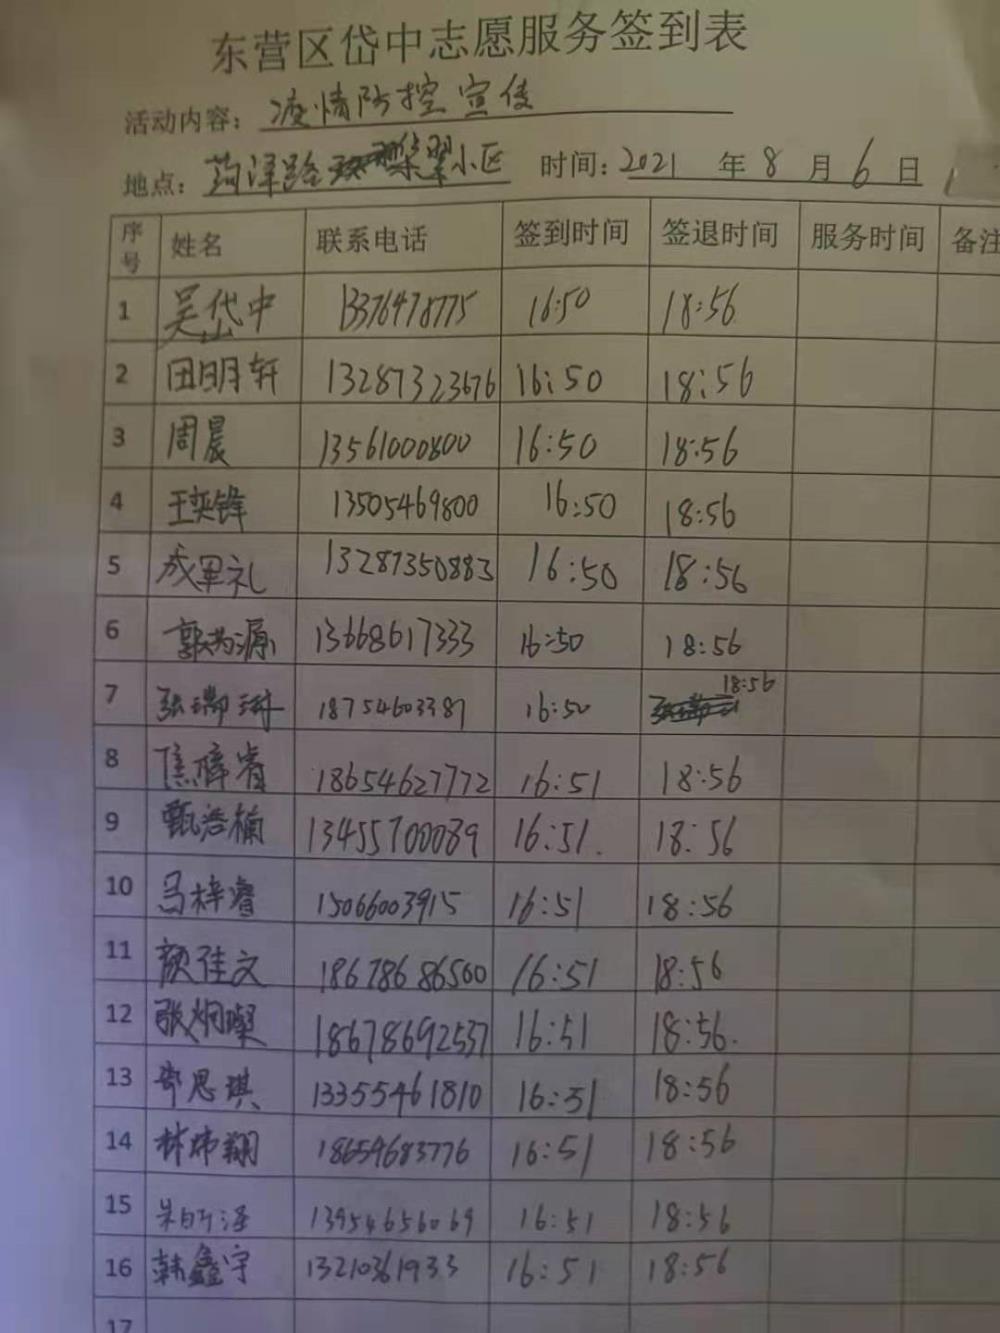 东营区岱中志愿服务签到表
活动内容：疫情防控宣传
地点：菏泽路翠小区 时间：2021 年 8 月 6 日
序号 姓名 联系电话 签到时间 签退时间 服务时间 备注
1 吴岱中 13376478775 16:50 18:56
2 田明轩 13287323676 16:50 18:56
3 周晨 13561000800 16:50 18:56
4 王奕锋 13505469800 16:50 18:56
5 成军礼 13287350883 16:50 18:56
6 郭为源 13668617333 16:50 18:56
7 张瑞 18754603387 16:50 18:56
8 焦梓睿 18654627772 16:51 18:56
9 甄浩楠 13455700089 16:51. 18:56
10 马梓睿 15066003915 16:51 18:56
11 颜佳文 18678686500 16:51 18:56
12 张炯璨 18678692537 16:51 18:56.
13 思琪 13355461810 16:51 18:56
14 林玮翔 18659683776 16:51 18:56
15 13954656069 16:51 18:56
16 韩鑫宇 13210361933 16:51 18:56
17